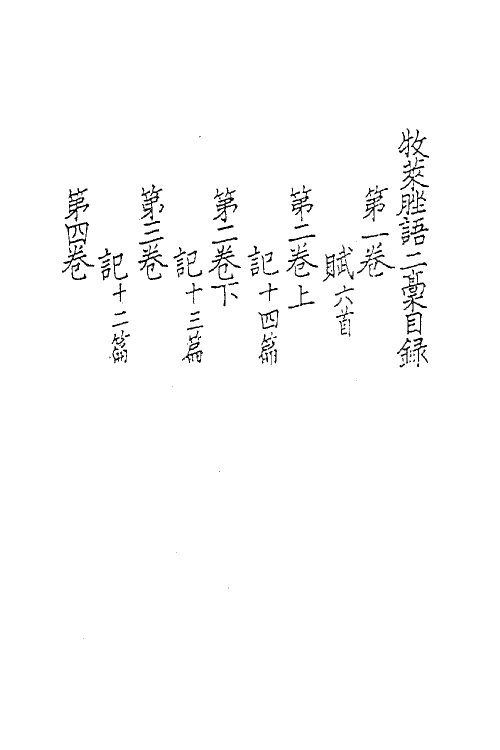 牧萊脞語二藁目錄
第一卷
賦六首
第二卷上
記十四篇
第二卷下
記十三篇
第三卷
記十二篇
第四卷